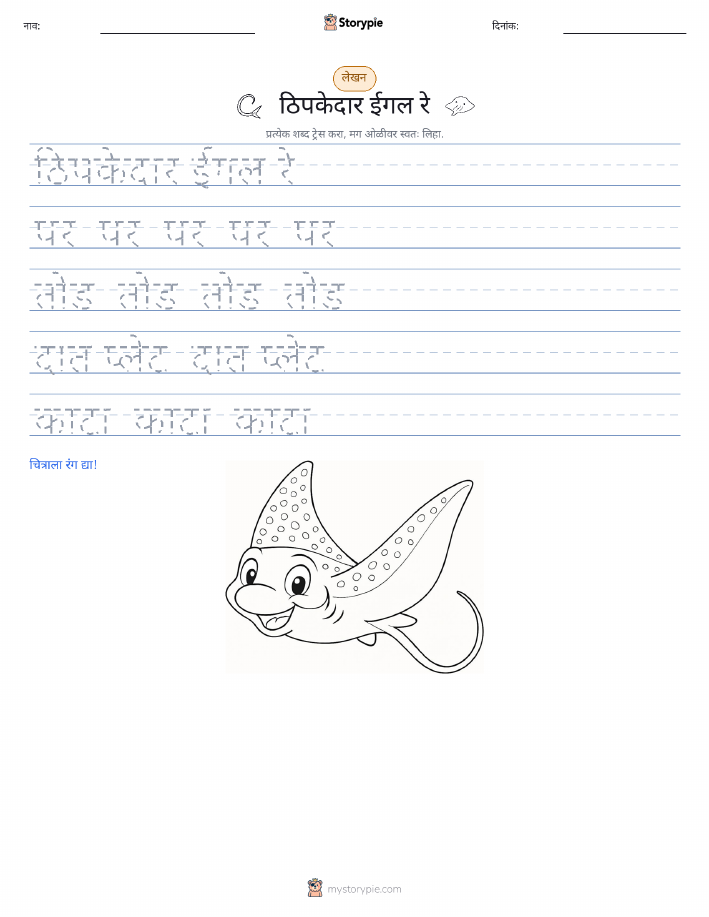 नाव:
Storypie
दिनांक:
लेखन
ठिपकेदार ईगल रे
प्रत्येक शब्द ट्रेस करा, मग ओळीवर स्वतः लिहा.
ठिपकेदार ईगल रे
पर पर पर पर पर
तोंड तोंड तोंड तोंड
दात प्लेट दात प्लेट
काटा काटा काटा
चित्राला रंग द्या!
mystorypie.com